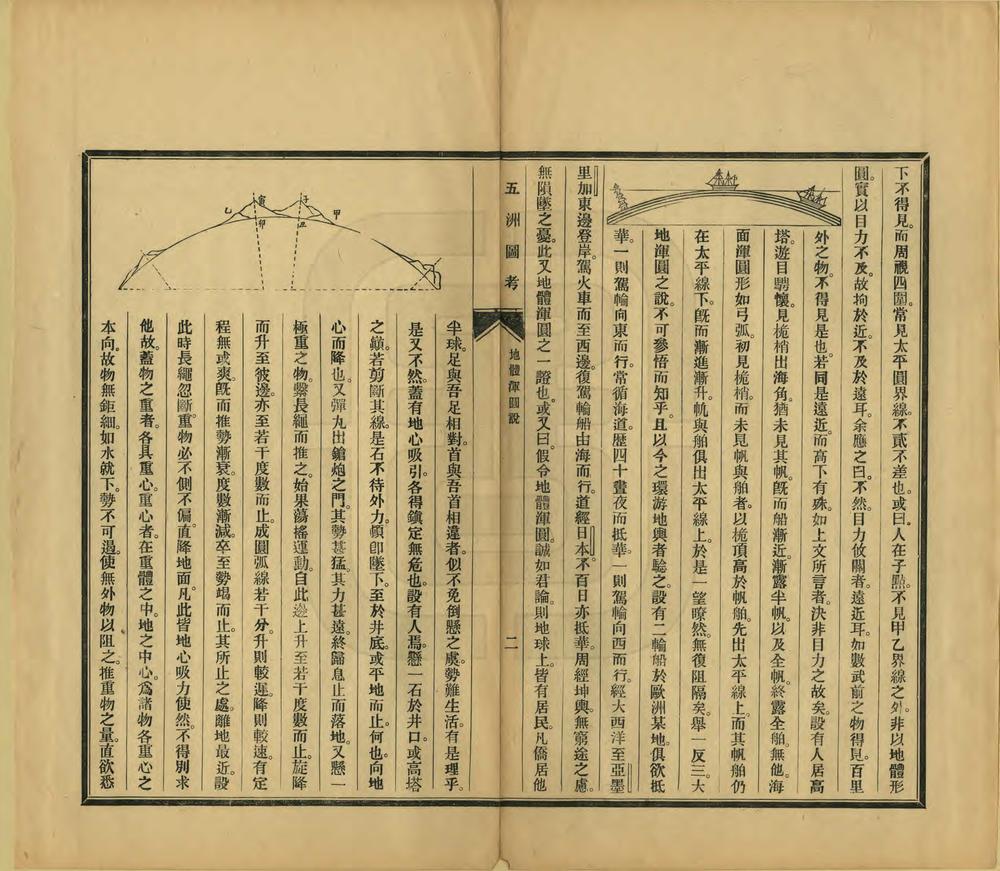 下不得見。而周視四圍。常見太平圓界線。不貳不差也。或曰。人在子點。不見甲乙界線之外。非以地體形
圓。實以目力不及。故拘於近。不及於遠耳。余應之曰。不然。目力攸關者。遠近耳。如數武前之物得見。百里
外之物。不得見是也。若同是遠近。而高下有殊。如上文所言者。決非目力之故矣。設有人居高
塔。遊目騁懷。見桅梢出海角。猶未見其帆。既而船漸近。漸露半帆。以及全帆。終露全船。無他。海
面渾圓形如弓弧。初見桅梢。而未見帆與船者。以桅頂高於帆船。先出太平線上。而其帆船仍
在太平線下。既而漸進漸升。帆與船俱出太平線上。於是一望暸然。無復阻隔矣。舉一反三。大
地渾圓之說。不可參悟而知乎。且以今之環游地輿者驗之。設有二輪船於歐洲某地。俱欲抵
華。一則駕輪向東而行。常循海道。歷四十晝夜而抵華。一則駕輪向西而行。經大西洋至亞墨
里加東邊登岸。駕火車而至西邊。復駕輪船由海而行。道經日本。不百日亦抵華。周經坤輿。無窮途之慮。
無隕墜之憂。此又地體渾圓之一證也。或又曰。假令地體渾圓。誠如君論。則地球上。皆有居民。凡僑居他
五洲圖考
地體渾圓說
二
半球。足與吾足相對。首與吾首相違者。似不免倒懸之虞。勢難生活。有是理乎。
是又不然。蓋有地心吸引。各得鎮定無危也。設有人焉。懸一石於井口。或高塔
之巔。若剪斷其線。是石不待外力。頓即墜下。至於井底。或平地而止。何也。向地
心而降也。又彈丸出鎗炮之門。其勢甚猛。其力甚遠。終歸息止而落地。又懸一
極重之物。繫長繩而推之。始果蕩搖運動。自此邊上升至若干度數而止。旋降
而升至彼邊。亦至若干度數而止。成圓弧線若干分。升則較遲。降則較速。有定
程無或爽。既而推勢漸衰。度數漸減。卒至勢竭而止。其所止之處。離地最近。設
此時長繩忽斷。重物必不側不偏。直降地面。凡此皆地心吸力使然。不得別求
他故。蓋物之重者。各具重心。重心者。在重體之中。地之中心。為諸物各重心之
本向。故物無鉅細。如水就下。勢不可遏。使無外物以阻之。推重物之量。直欲悉
甲
子
丑
寅
卯
乙